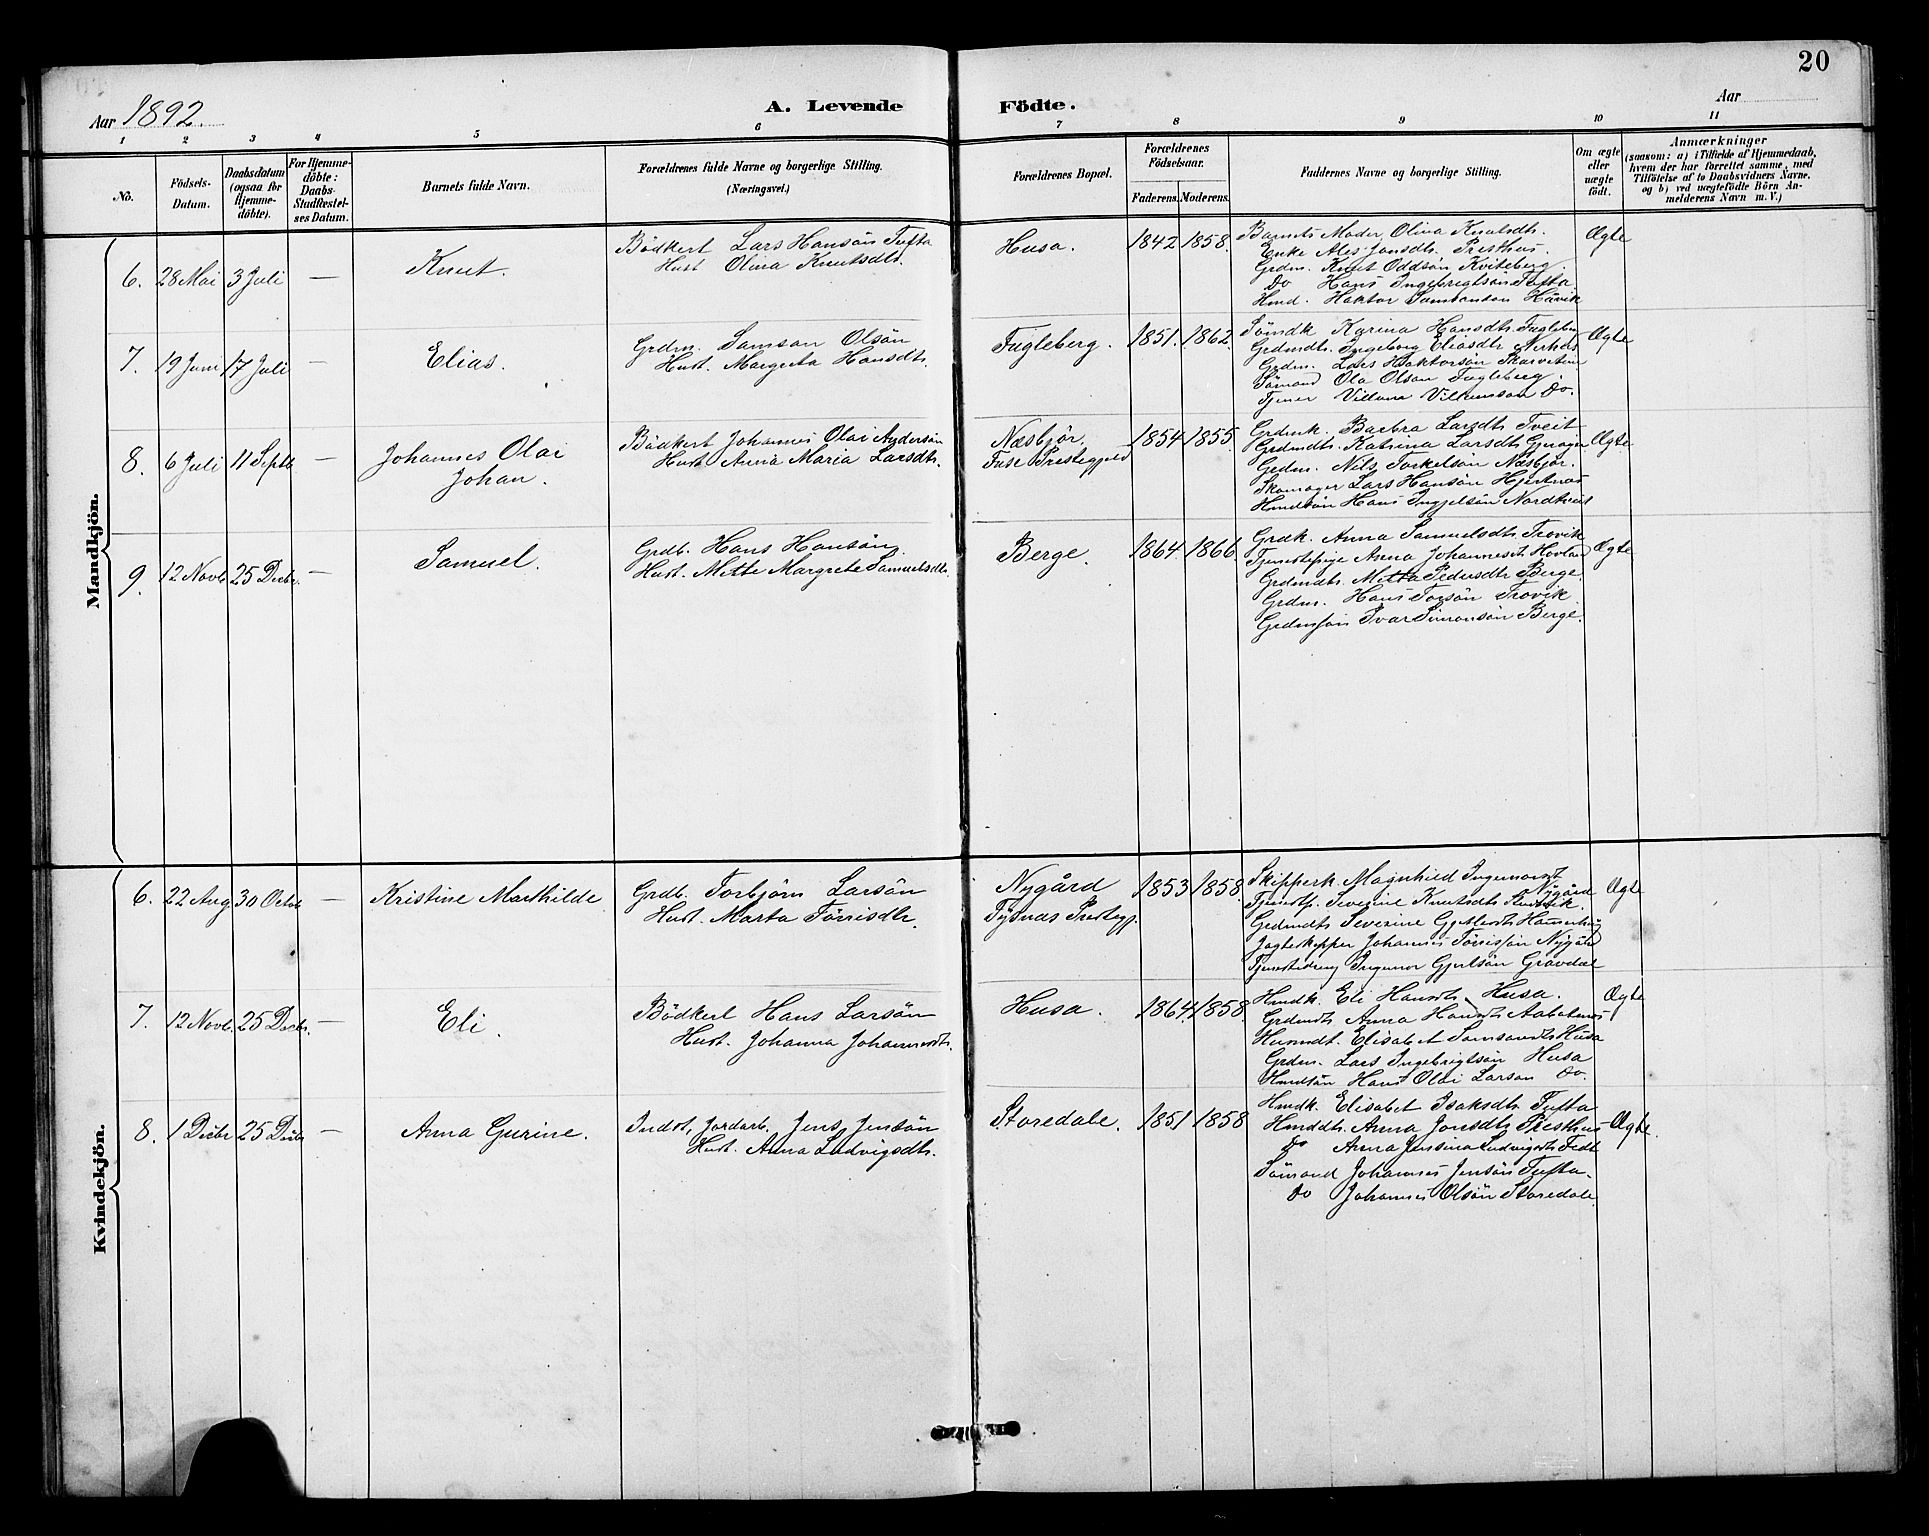 20
Aar 1892.
A. Levende Födte.
Aar
1 2 3 4 5 6 7 8 9 10 11
No.
Födsels-
Datum.
Daabsdatum
(ogsaa for
Hjemme-
döbte).
For Hjemme-
döbte:
Daabs-
Stadfæstel-
ses Datum.
Barnets fulde Navn.
Forældrenes fulde Navne og borgerlige Stilling.
(Næringsvei.)
Forældrenes Bopæl.
Forældrenes
Födselsaar.
Faderens. Moderens.
Faddernes Navne og borgerlige Stilling.
Om ægte
eller
uægte
födt.
Anmærkninger
(saasom: a) i Tilfælde af Hjemmedaab,
hvem der har forrettet samme, med
Tilföielse af to Daabsvidners Navne,
og b) ved uægtefödte Börn An-
melderens Navn m. V.)
Mandkjön.
6. 28 Mai 3 Juli — Knut.
Bödkert Lars Hansön Tufta
Hust. Olina Knutsdtr.
Husa. 1842 1858.
Barnets Moder Olina Knutsdtr.
Enke Ales Jonsdtr. Presthus
Grdm. Knut Oddsön Kviteberg.
Do Hans Ingebrigtsön Tufta
Hmd. Haktor Samsonsön Håvik
Ægte
7. 19 Juni 17 Juli — Elias.
Grdm. Samson Olsön
Hust. Margreta Hansdtr.
Fugleberg. 1851. 1862.
Sömdk Karina Hansdtr. Fugleberg
Grdmdtr. Ingeborg Eliasdtr Nerhus
Grdm. Lars Haktorsön Skarvetun
Sömand Ola Olson Fugleberg.
Tjener Villum Vilhemson Do.
Ægte
8. 6 Juli 11 Septb — Johannes Olai
Johan.
Bödkert Johannes Olai Andersön
Hust. Anna Maria Larsdtr.
Næsbjör.
Fuse Prestegjeld
1854 1855.
Grdmk. Barbra Larsdtr Tveit
Grdmdtr. Katrina Larsdtr
Grdm. Nils Torkelsön Næsbjör.
Skomager Lars Hansön Hjertnes
Hmdsön Hans Nordtveit
Ægte
9. 12 Novb 25 Decbr. — Samuel.
Grdb. Hans Hansön
Hust. Mette Margrete Samuelsdtr.
Berge. 1864. 1866.
Grdk. Anna Samuelsdtr. Trovik
Tjenestepige Anna Johannesdt Hovland
Grdmdtr. Metta Pedersdtr Berge.
Grdm. Hans Torsön Trovik
Grdmsön Ivar Simonsön Berge.
Ægte
Kvindekjön.
6. 22 Aug 30 Octob — Kristine Mathilde
Grdb. Torbjörn Larsön
Hust. Marta Törrisdtr.
Nygård
Tysnæs Prestegj.
1853 1858.
Skipperk. Magnhild Ingemorsdt
Nygård
Tjenestp. Severine Knutsdtr
Grdmdtr Severine
Jagteskipper Johannes Törrissön Nygård
Tjenestedreng Ingemor Gjertsön Gravdal
Ægte
7. 12 Novb. 25 Decbr. — Eli.
Bödkert Hans Larsön
Hust. Johanna Johannesdtr.
Husa. 1864. 1858.
Hmdk. Eli Hansdtr. Husa.
Grdmdtr Anna Hansdtr
Husmdt. Elisabet Samsondtr Husa
Grdm. Lars Ingebrigtsön Husa
Hmdsön Hans Olai Larson Do.
Ægte
8. 1 Decbr 25 Decbr — Anna Gurine.
Indst, Jordarb. Jens Jensön
Hust. Anna Ludvigsdtr.
Storedale. 1851 1858
Hmdk. Elisabet Isaksdtr. Tufta
Hmddtr. Anna Jonsdtr Presthus
Do Anna Jensina Ludvigsdtr
Sömand Johannes Jensön Tufta.
Do Johannes Olsön Storedale.
Ægte.